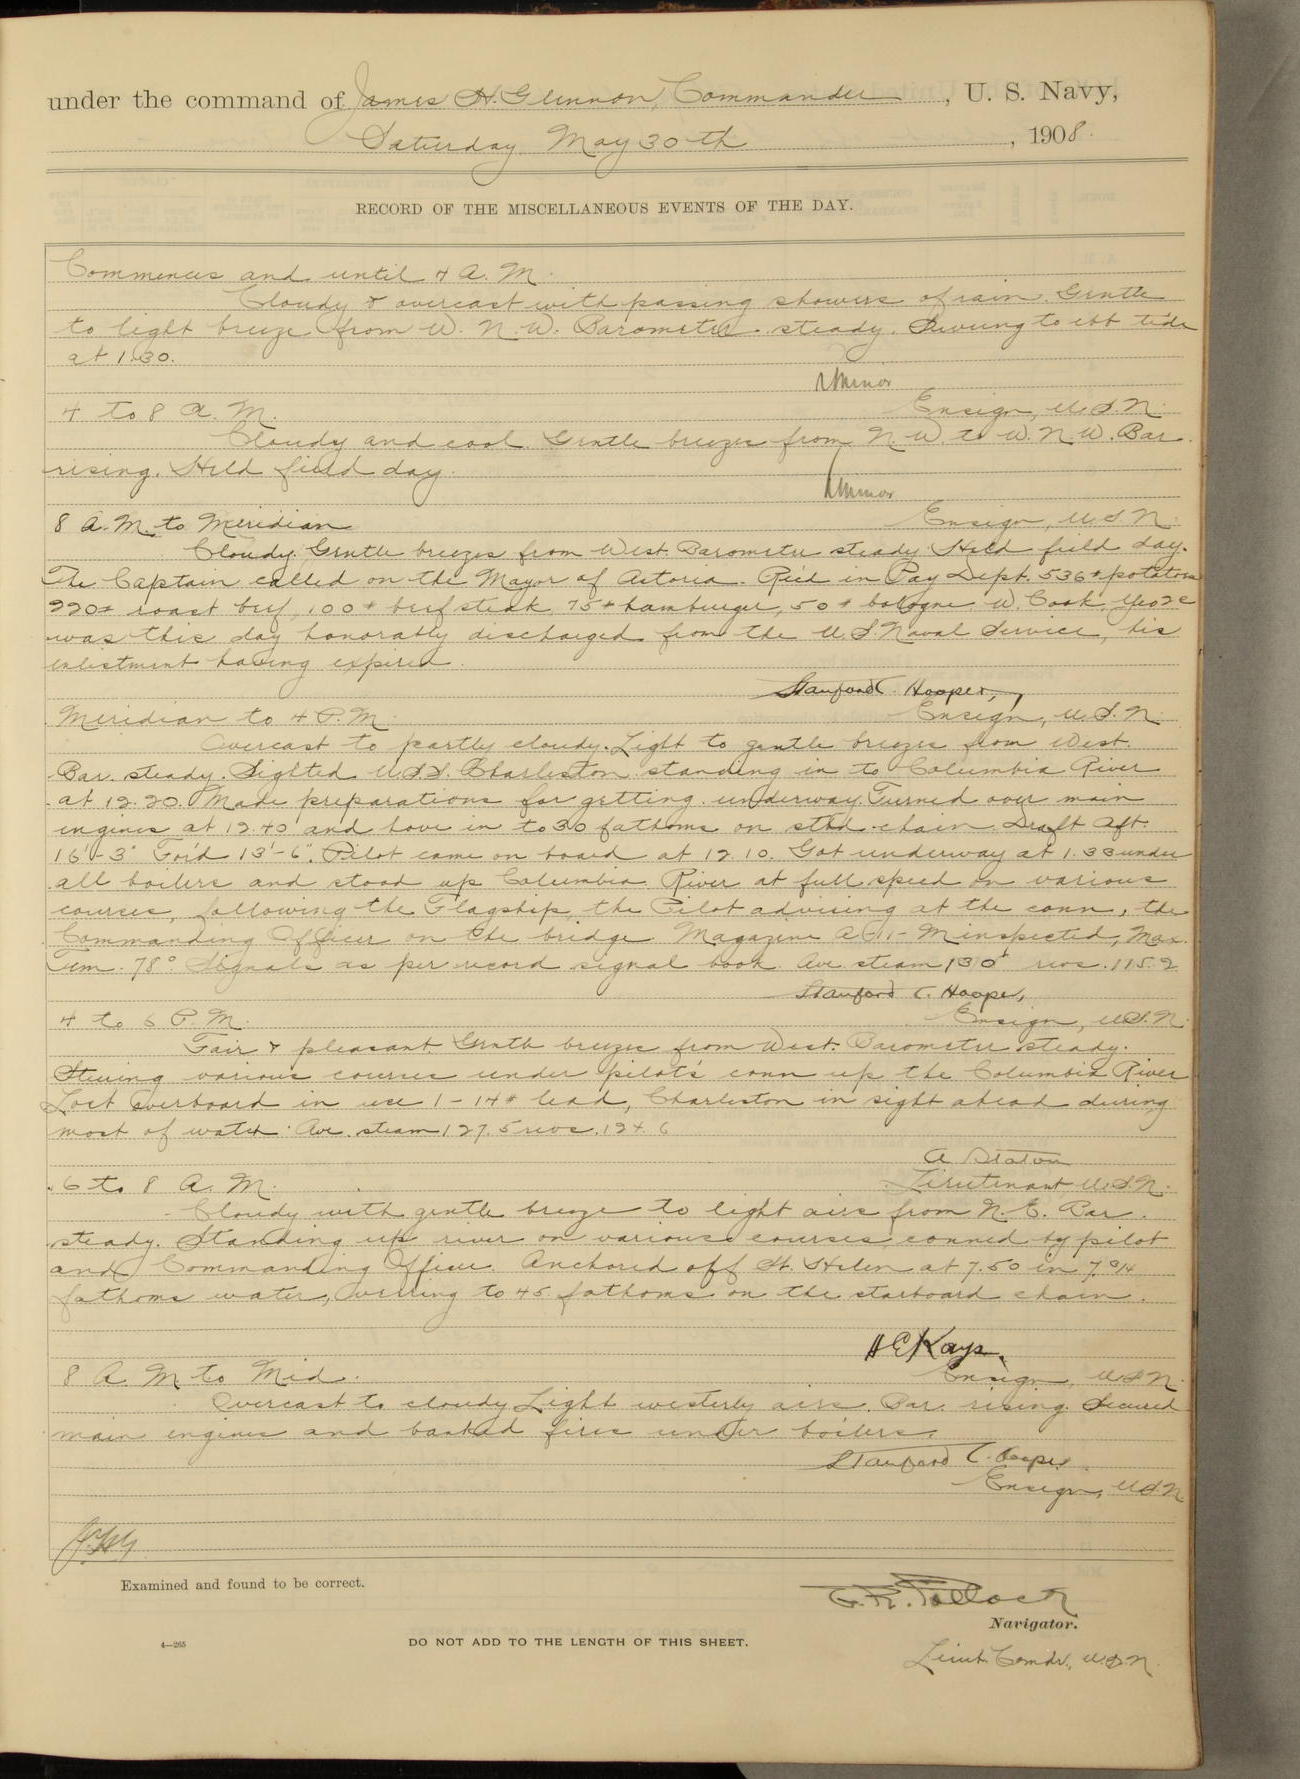 under the command of James H. Glennon, Commander, U. S. Navy,
Saturday May 30th, 1908.
RECORD OF THE MISCELLANEOUS EVENTS OF THE DAY.
Commences and until 4 A. M.
Cloudy & overcast with passing showers of rain. Gentle
to light breeze from W. N. W. Barometer steady. Swung to ebb tide
at 1.30.
Minor
Ensign, U.S.N.
4 to 8 A. M.
Cloudy and cool. Gentle breezes from N. W. to W. N. W. Bar.
rising. Held field day.
Minor
Ensign, U.S.N.
8 A. M. to Meridian
Cloudy. Gentle breezes from West. Barometer steady. Held field day.
The Captain called on the Mayor of Astoria. Rec'd in Pay Dept. 536# potatoes
220# roast beef, 100# beefsteak 75# hamburger, 50# bologne W. Cook
was this day honorably discharged from the U.S. Naval Service, his
enlistment having expired.
Stanford C. Hooper,
Ensign, U.S.N.
Meridian to 4 P. M.
Overcast to partly cloudy. Light to gentle breezes from West.
Bar. steady. Sighted U.S.S. Charleston standing in to Columbia River
at 12.20. Made preparations for getting underway. Turned over main
engines at 12.40 and hove in to 30 fathoms on stbd. chain. Draft Aft.
16'-3" For'd 13'-6". Pilot came on board at 12.10. Got underway at 1.33 under
all boilers and stood up Columbia River at full speed on various
courses, following the Flagship, the Pilot advising at the conn, the
Commanding Officer on the bridge. Magazine inspected, Max.
Tem. 78°. Signals as per record signal book. Ave. steam 130# revs. 115.2
Stanford C. Hooper,
Ensign, U.S.N.
4 to 6 P. M.
Fair & pleasant. Gentle breezes from West. Barometer steady.
Steering various courses under pilot's conn up the Columbia River
Lost overboard in use 1-14# lead, Charleston in sight ahead during
most of watch. Ave. steam 127.5 revs. 124.6
A Staton
Lieutenant U.S.N.
6 to 8 A. M.
Cloudy with gentle breeze to light airs from N. E. Bar.
steady. Standing up river on various courses conned by pilot
and Commanding Officer. Anchored off St. Helen at 7.50 in 7 3/4
fathoms water, veering to 45 fathoms on the starboard chain.
H E Kays.
Ensign, U.S.N.
8 A. M to Mid.
Overcast to cloudy Light westerly airs. Bar. rising. Secured
main engines and banked fires under boilers.
Stanford C. Hooper
Ensign, U.S.N
Examined and found to be correct.
G. R. Pollock
Navigator.
4—265
DO NOT ADD TO THE LENGTH OF THIS SHEET.
Lieut. Comdr., U.S.N.